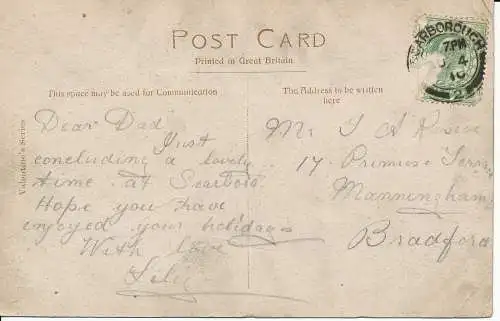 POST CARD
Printed in Great Britain.
This space may be used for Communication
The Address to be written
here
Valentine's Series
SCARBOROUGH
7 PM
4
10
Dear Dad
Just
concluding a lovely
time at Scarboro.
Hope you have
enjoyed your holidays
With love
Lily
Mr T A
17 Primrose Terrace
Manningham
Bradford